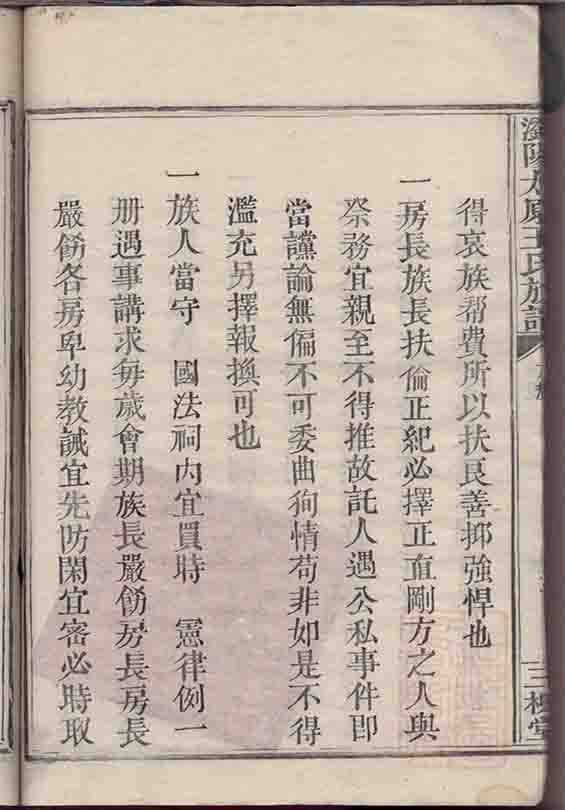 瀏陽太原王氏族譜
三槐堂
得哀族帮費所以扶良善抑強悍也
一房長族長扶倫正紀必擇正直剛方之人與
祭務宜親至不得推故託人遇公私事件卽
當讜論無偏不可委曲狥情苟非如是不得
濫充另擇報換可也
一族人當守　國法祠內宜買時　憲律例一
册遇事講求每歲會期族長嚴飭房長房長
嚴飭各房卑幼教誡宜先防閑宜密必時取